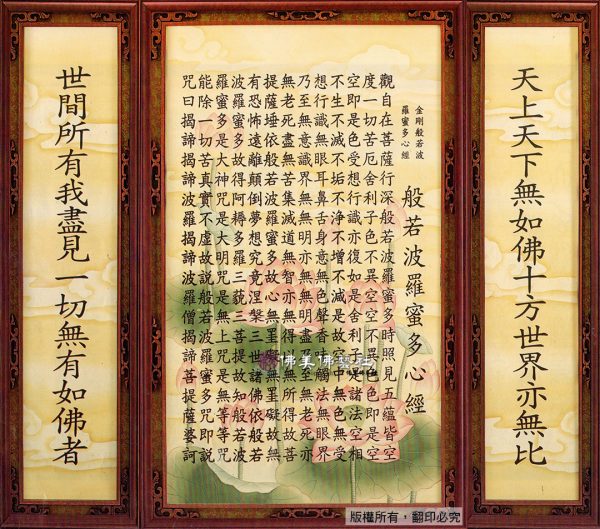 天上天下無如佛十方世界亦無比
般若波羅蜜多心經
金剛般若波
羅蜜多心經
觀自在菩薩行深般若波羅蜜多時照見五蘊皆空
度一切苦厄舍利子色不異空空不異色色即是空
空即是色受想行識亦復如是舍利子是諸法空相
不生不滅不垢不淨不增不減是故空中無色無受
想行識無眼耳鼻舌身意無色聲香味觸法無眼界
乃至無意識界無無明亦無無明盡乃至無老死亦
無老死盡無苦集滅道無智亦無得以無所得故菩
提薩埵依般若波羅蜜多故心無罣礙無罣礙故無
有恐怖遠離顛倒夢想究竟涅槃三世諸佛依般若
波羅蜜多故得阿耨多羅三藐三菩提故知般若波
羅蜜多是大神咒是大明咒是無上咒是無等等咒
能除一切苦真實不虛故說般若波羅蜜多咒即說
咒曰揭諦揭諦波羅揭諦波羅僧揭諦菩提薩婆訶
世間所有我盡見一切無有如佛者
佛美佛
版權所有，翻印必究